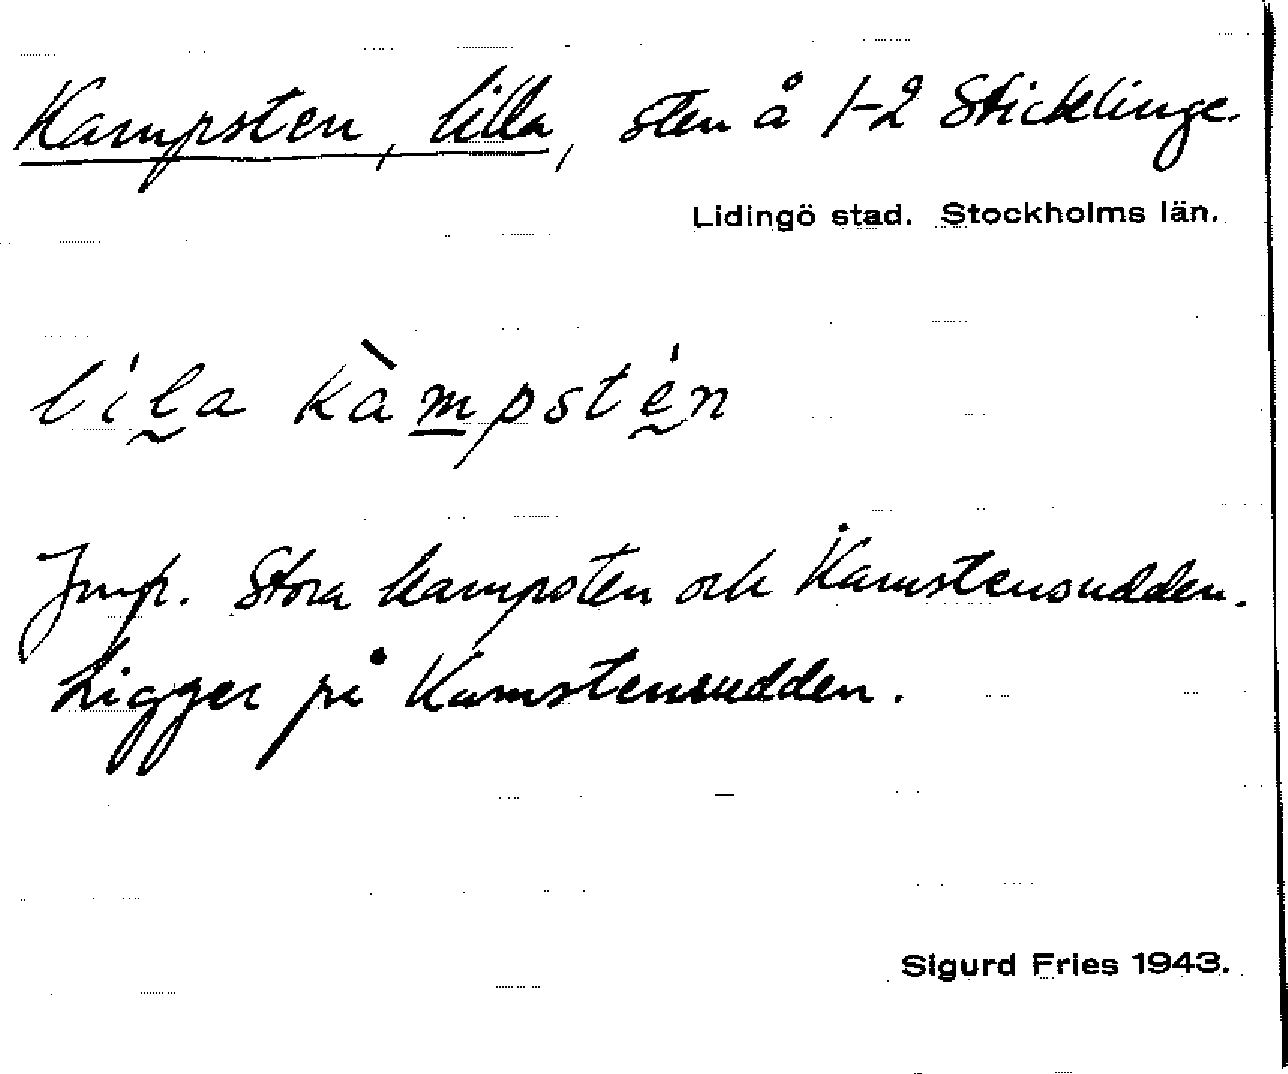 Kampsten, lilla, sten å 1-2 Sticklinge.
Lidingö stad. Stockholms län.
lila kàmpstén
Jmfr. Stora kampsten och Kamstensudden.
Ligger på Kamstensudden.
Sigurd Fries 1943.